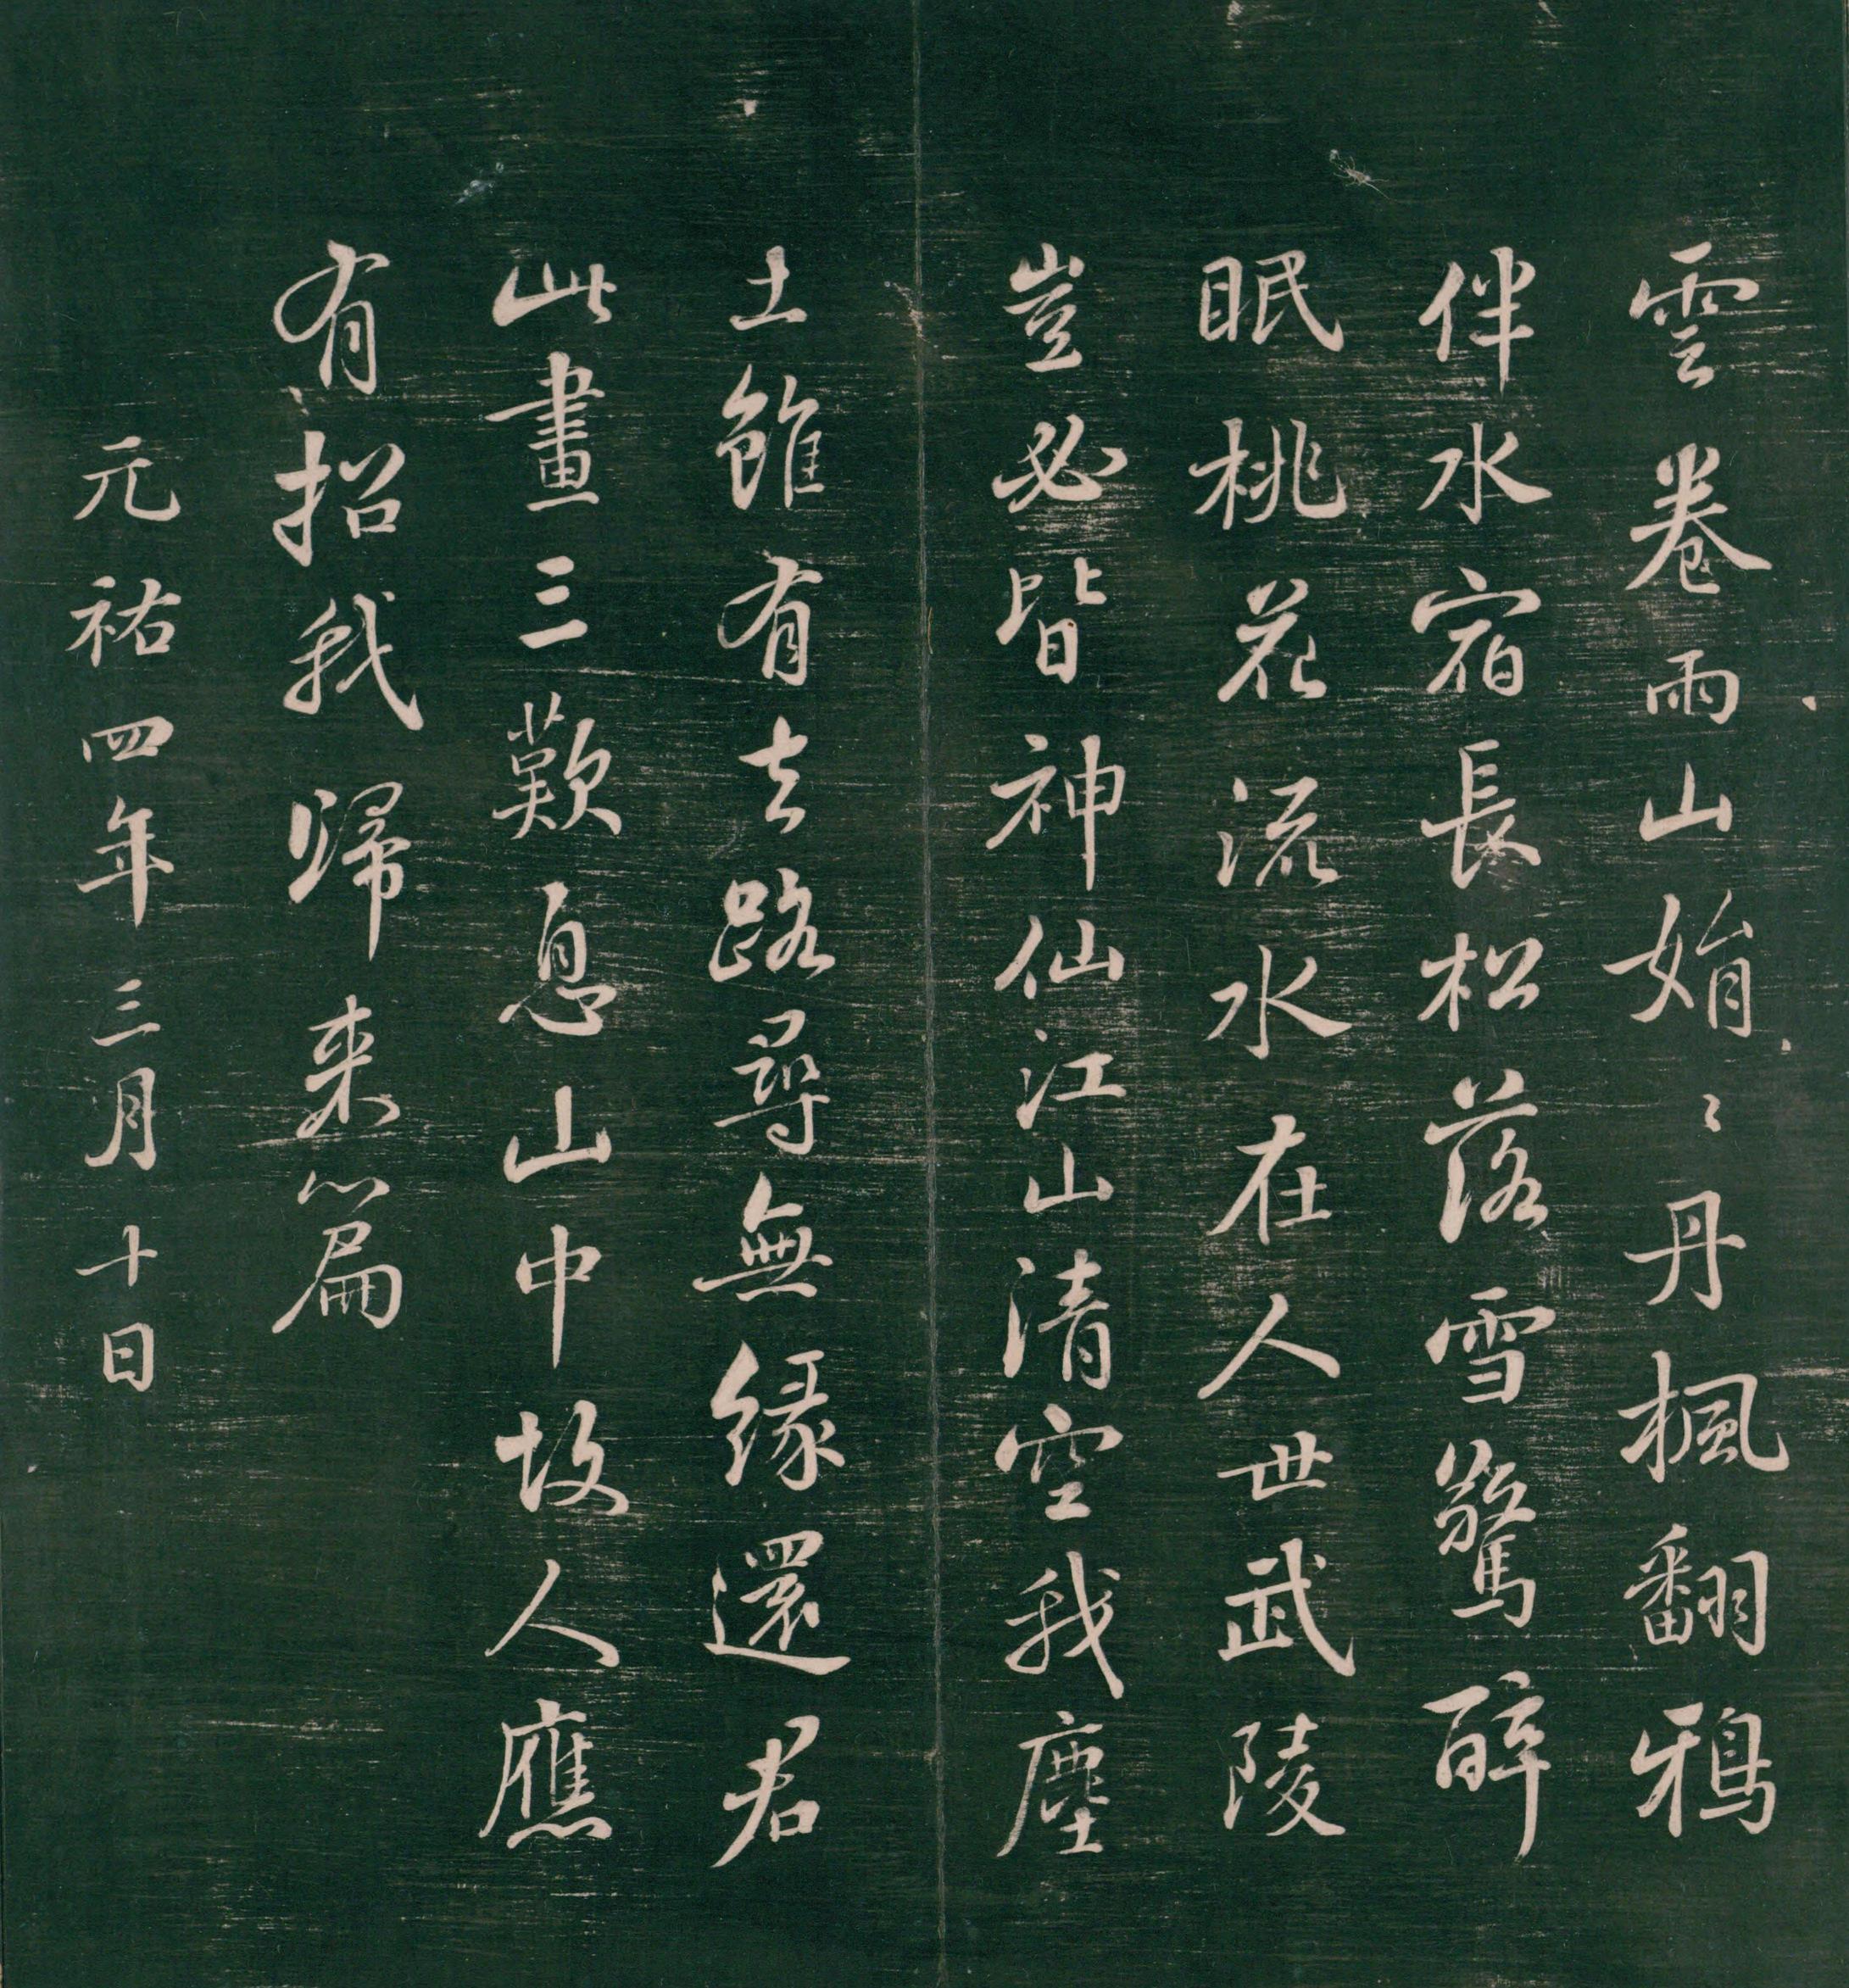 雲卷雨山娟〻丹楓翻鴉
伴水宿長松落雪驚醉
眠桃花流水在人世武陵
豈必皆神仙江山清空我塵
土雖有去路尋無緣還君
此畫三歎息山中故人應
有招我歸来篇
元祐四年三月十日